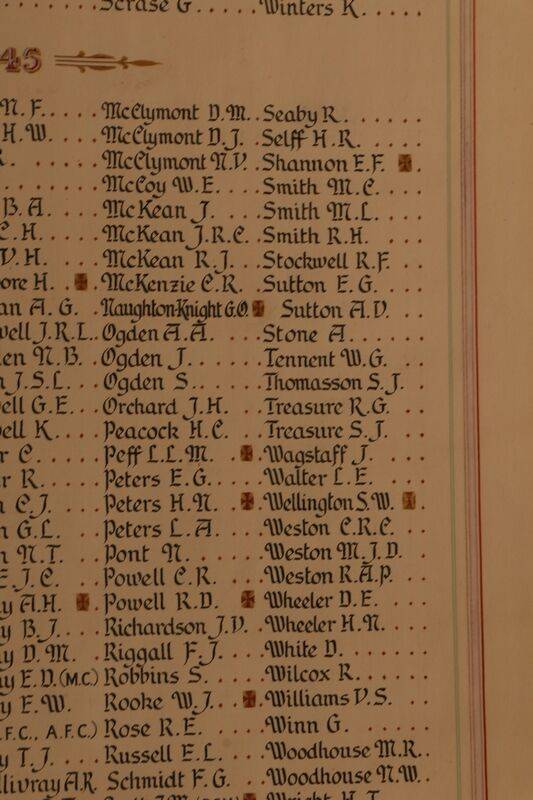 Scrase G ..... Winters K.....
45
N.F..... McClymont D.M.. Seaby R. ......
H.W.... McClymont D.J. Selff H.R. .....
R. .... McClymont N.V. Shannon E.F.
........ McCoy W.E.... Smith M.C. ....
B.A. .... McKean J. .... Smith M.L. ....
C.H. .... McKean J.R.C. . Smith R.H. ...
V.H. .... McKean R.J... Stockwell R.F. ..
ore H. .. McKenzie C.R. . Sutton E.G. ...
an A.G. . Naughton-Knight G.O. Sutton A.V. ..
well J.R.L.. Ogden A.A. ... Stone A......
en N.B. . Ogden J...... Tennent W.G. ..
J.S.L... Ogden S...... Thomasson S.J. .
ell G.E... Orchard J.H. ... Treasure R.G. ..
ell K.... Peacock H.C. .. Treasure S.J. ..
r C. .... Peff L.L.M. . Wagstaff J. ....
r R. .... Peters E.G..... Walter L.E. ...
C.J. ... Peters H.N. . Wellington S.W.
G.L. ... Peters L.A. ... Weston C.R.C. ..
N.T. ... Pont N. ...... Weston M.J.D. .
E.J.C. ... Powell C.R. ... Weston R.A.P. ..
y A.H. . Powell R.D. . Wheeler D.E. ...
y B.J. ... Richardson J.V. . Wheeler H.N. ...
y D.M. . Riggall F.J. ... White D. .....
y E.D.(M.C.) Robbins S. .... Wilcox R......
y E.W. Rooke W.J.. . Williams V.S. ...
.F.C., A.F.C.) Rose R.E. .... Winn G. ......
y T.J. ... Russell E.L. ... Woodhouse M.R..
llivray A.R. Schmidt F.G. .. Woodhouse N.W..
Wright H.T.